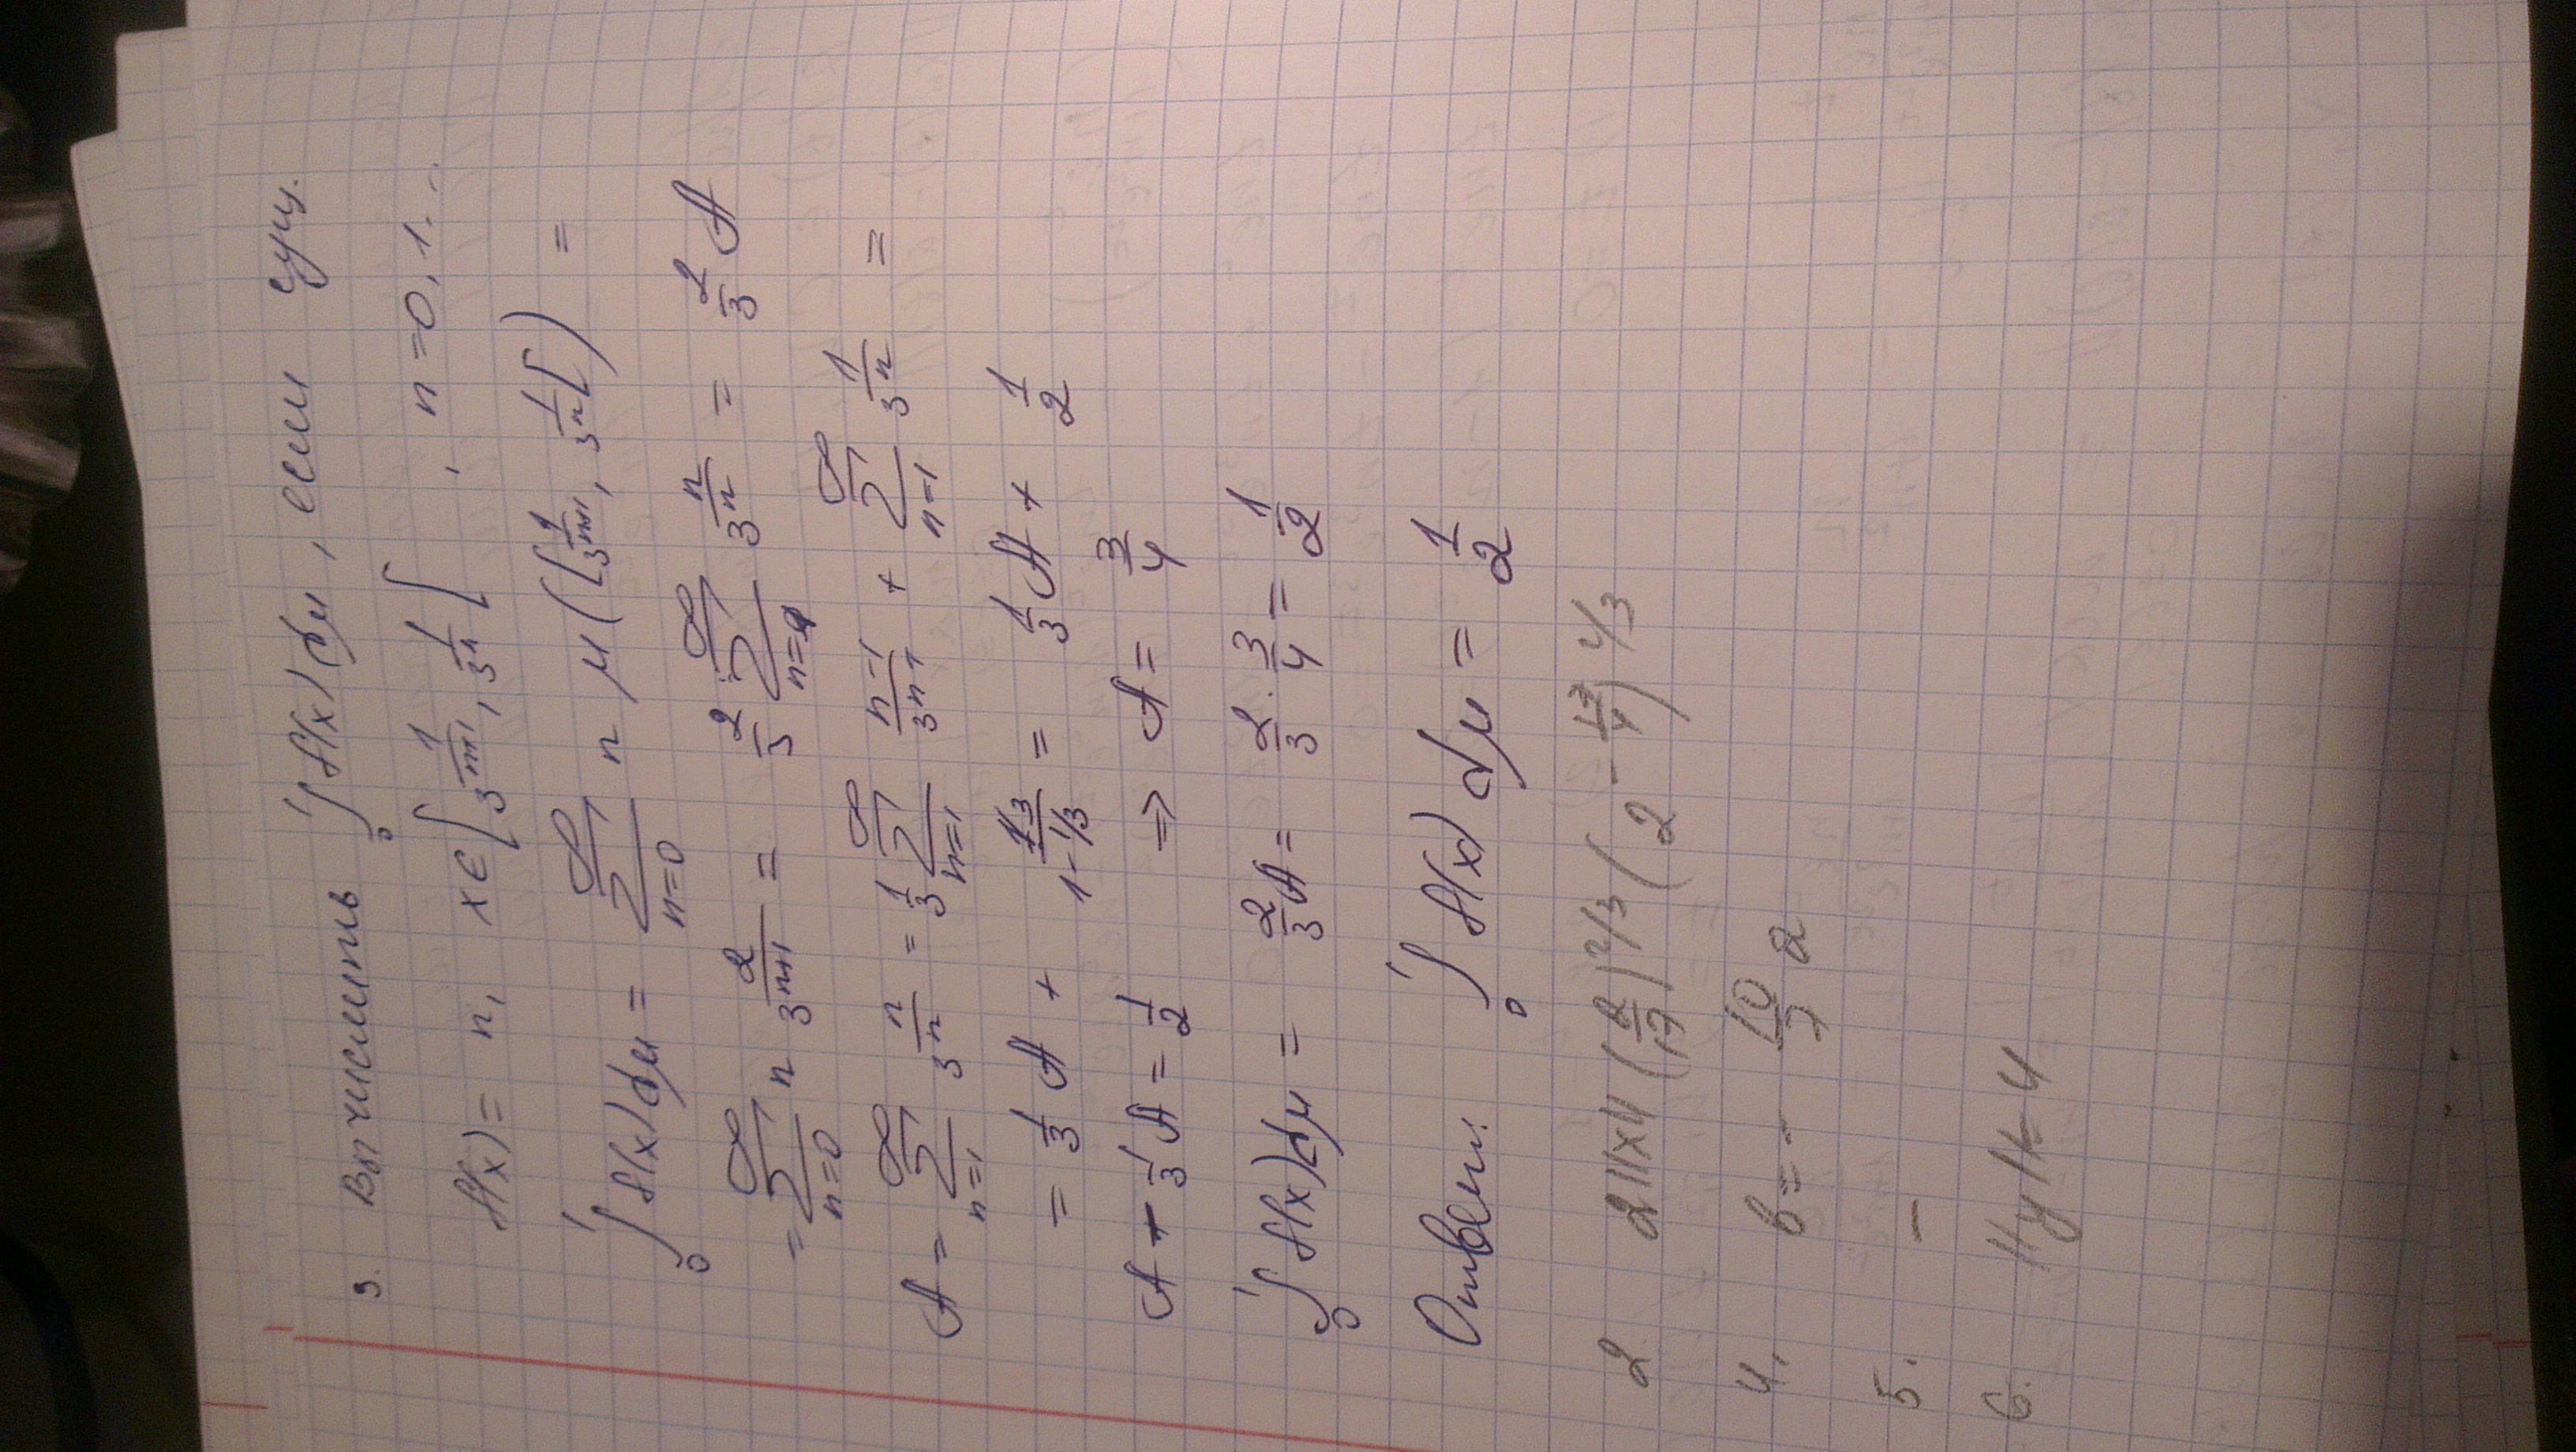 3. Вычислить ∫₀¹ f(x) dμ, если сущ.
f(x) = n, x ∈ [1/3ⁿ⁺¹, 1/3ⁿ[ , n = 0, 1...
∫₀¹ f(x) dμ = ∑_{n=0}^∞ n μ([1/3ⁿ⁺¹, 1/3ⁿ[) =
= ∑_{n=0}^∞ n 2/3ⁿ⁺¹ = 2/3 ∑_{n=1}^∞ n/3ⁿ = 2/3 A
A = ∑_{n=1}^∞ n/3ⁿ = 1/3 ∑_{n=1}^∞ (n-1)/3ⁿ⁻¹ + ∑_{n=1}^∞ 1/3ⁿ =
= 1/3 A + (1/3)/(1-1/3) = 1/3 A + 1/2
A - 1/3 A = 1/2 ⇒ A = 3/4
∫₀¹ f(x) dμ = 2/3 A = 2/3 · 3/4 = 1/2
Ответ: ∫₀¹ f(x) dμ = 1/2
2. 2||x|| (2/17)^{2/3} (2 - 17/4)^{1/3}
4. b = - 10/7 a
5. –
6.